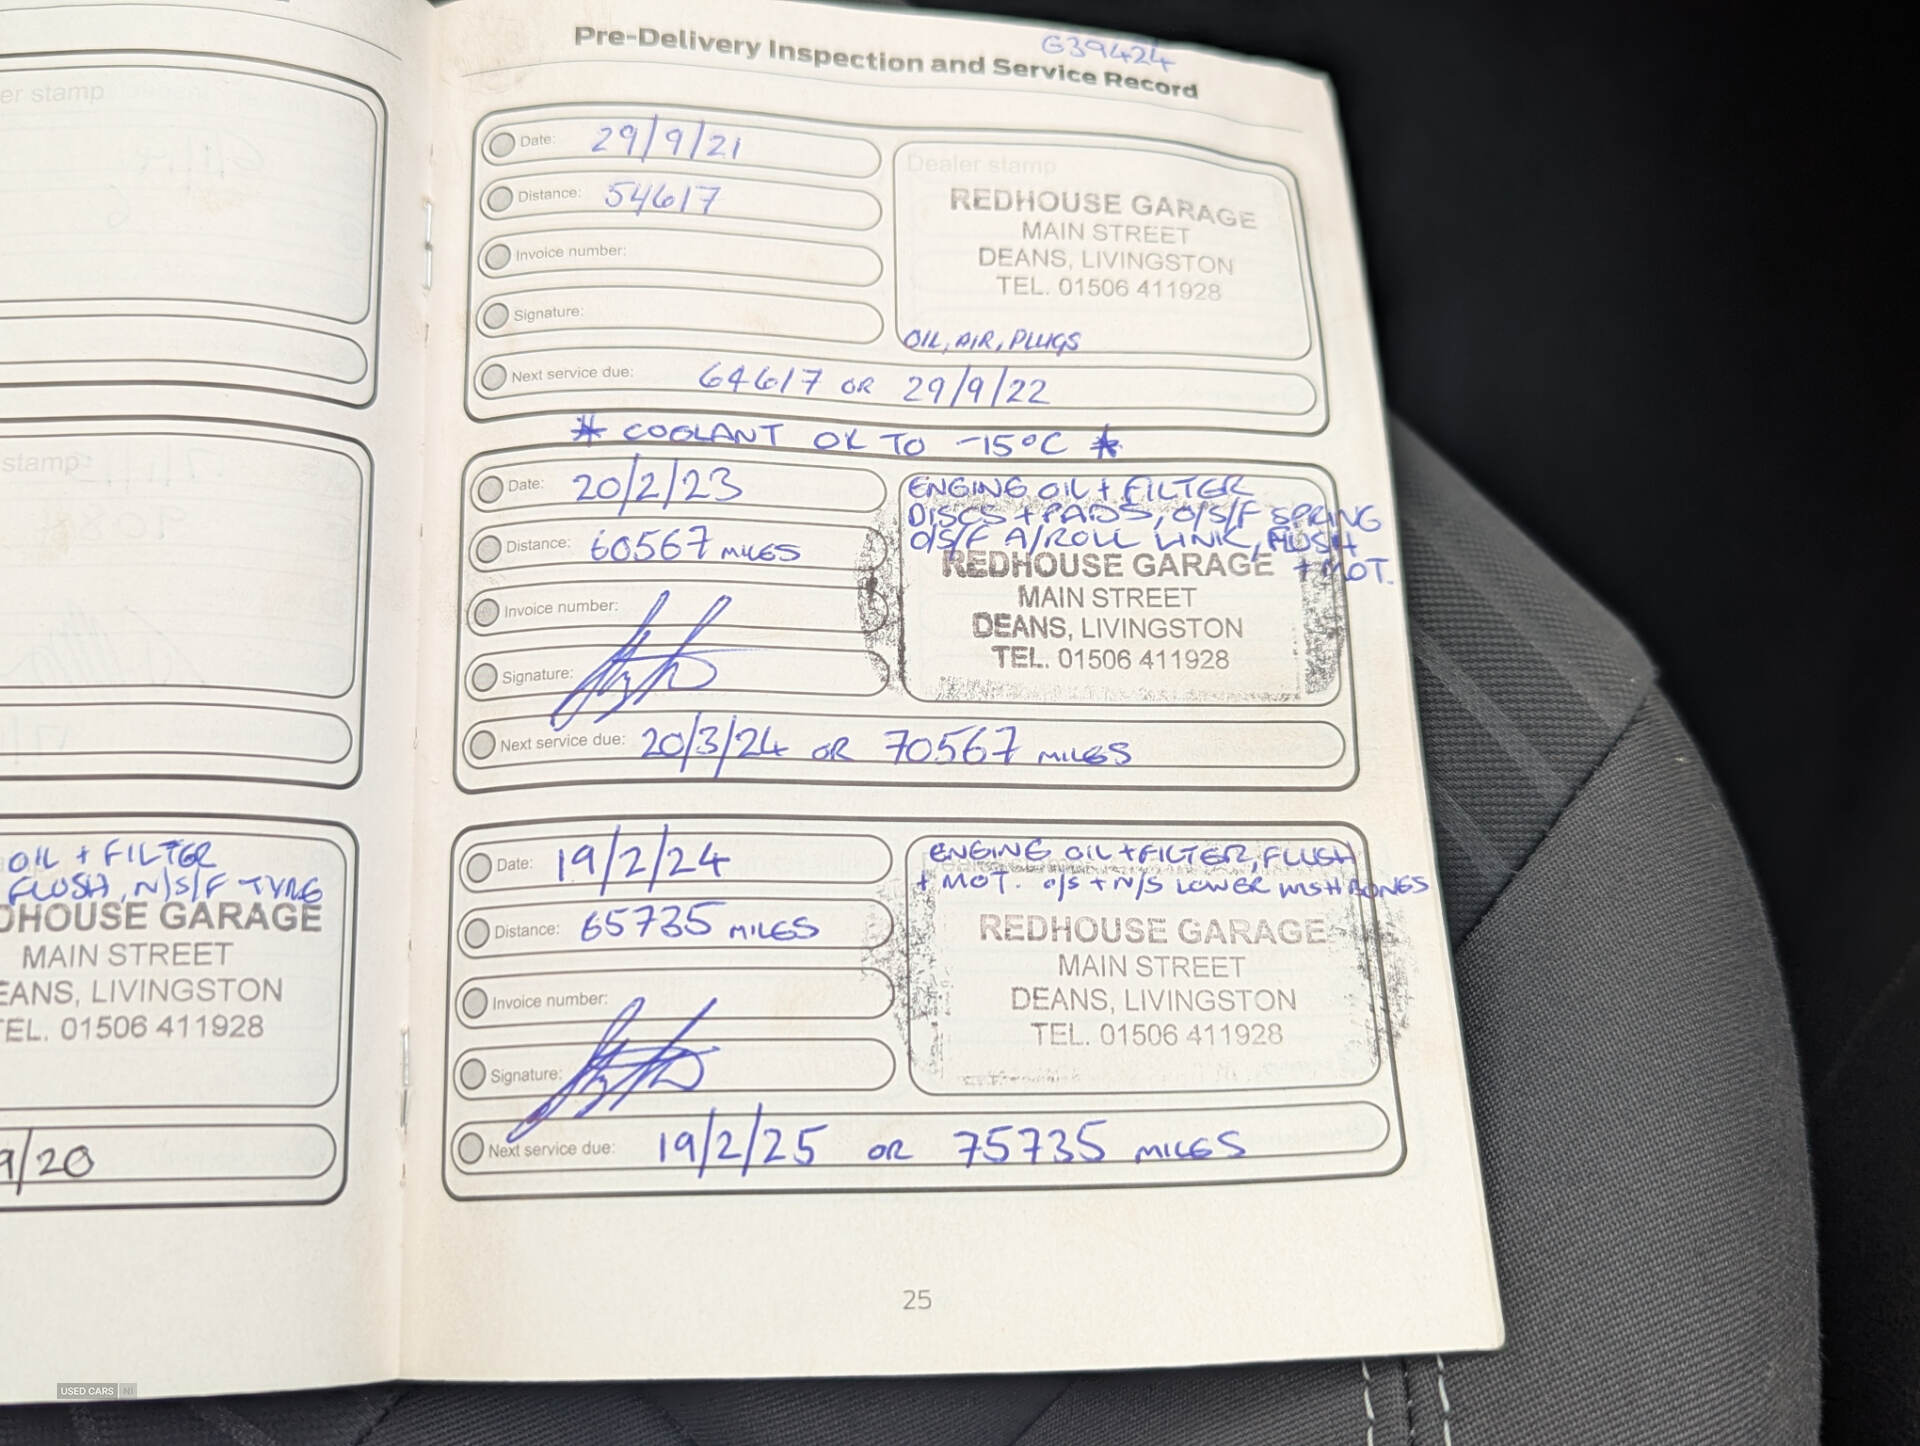 er stamp
stamp
OIL + FILTER
FLUSH, N/S/F TYRE
DHOUSE GARAGE
MAIN STREET
EANS, LIVINGSTON
TEL. 01506 411928
9/20
G39424
Pre-Delivery Inspection and Service Record
Date: 29/9/21
Distance: 54617
Invoice number:
Signature:
Dealer stamp
REDHOUSE GARAGE
MAIN STREET
DEANS, LIVINGSTON
TEL. 01506 411928
OIL, AIR, PLUGS
Next service due: 64617 OR 29/9/22
* COOLANT OK TO -15°C *
Date: 20/2/23
Distance: 60567 MILES
Invoice number:
Signature:
ENGINE OIL + FILTER
DISCS + PADS, O/S/F SPRING
O/S/F A/ROLL LINK, FLUSH
+ MOT.
REDHOUSE GARAGE
MAIN STREET
DEANS, LIVINGSTON
TEL. 01506 411928
Next service due: 20/3/24 OR 70567 MILES
Date: 19/2/24
Distance: 65735 MILES
Invoice number:
Signature:
ENGINE OIL + FILTER, FLUSH
+ MOT. O/S + N/S LOWER WISHBONES
REDHOUSE GARAGE
MAIN STREET
DEANS, LIVINGSTON
TEL. 01506 411928
Next service due: 19/2/25 OR 75735 MILES
25
USED CARS NI